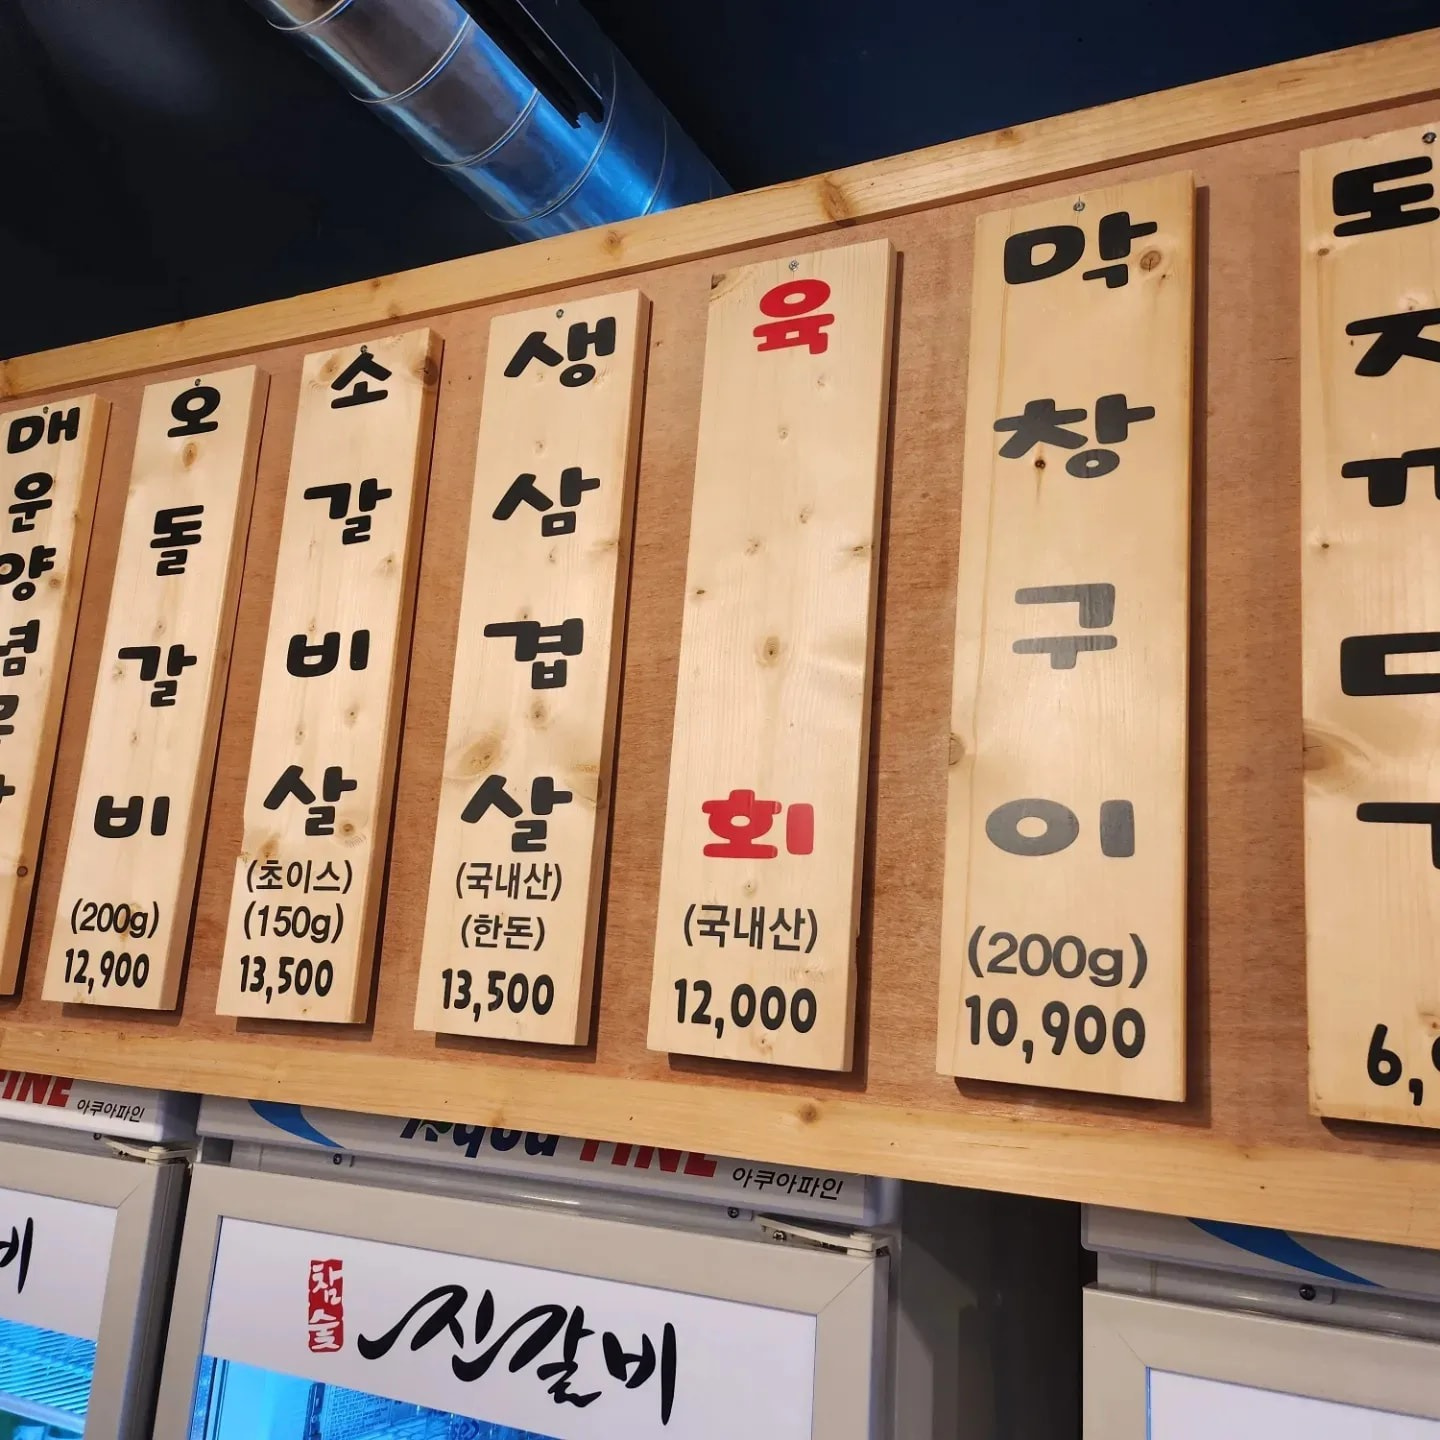 매운양념
오돌갈비
(200g)
12,900
소갈비살
(초이스)
(150g)
13,500
생삼겹살
(국내산)
(한돈)
13,500
육회
(국내산)
12,000
막창구이
(200g)
10,900
6,
FINE 아쿠아파인
Aqua FINE 아쿠아파인
비
참숯
진갈비